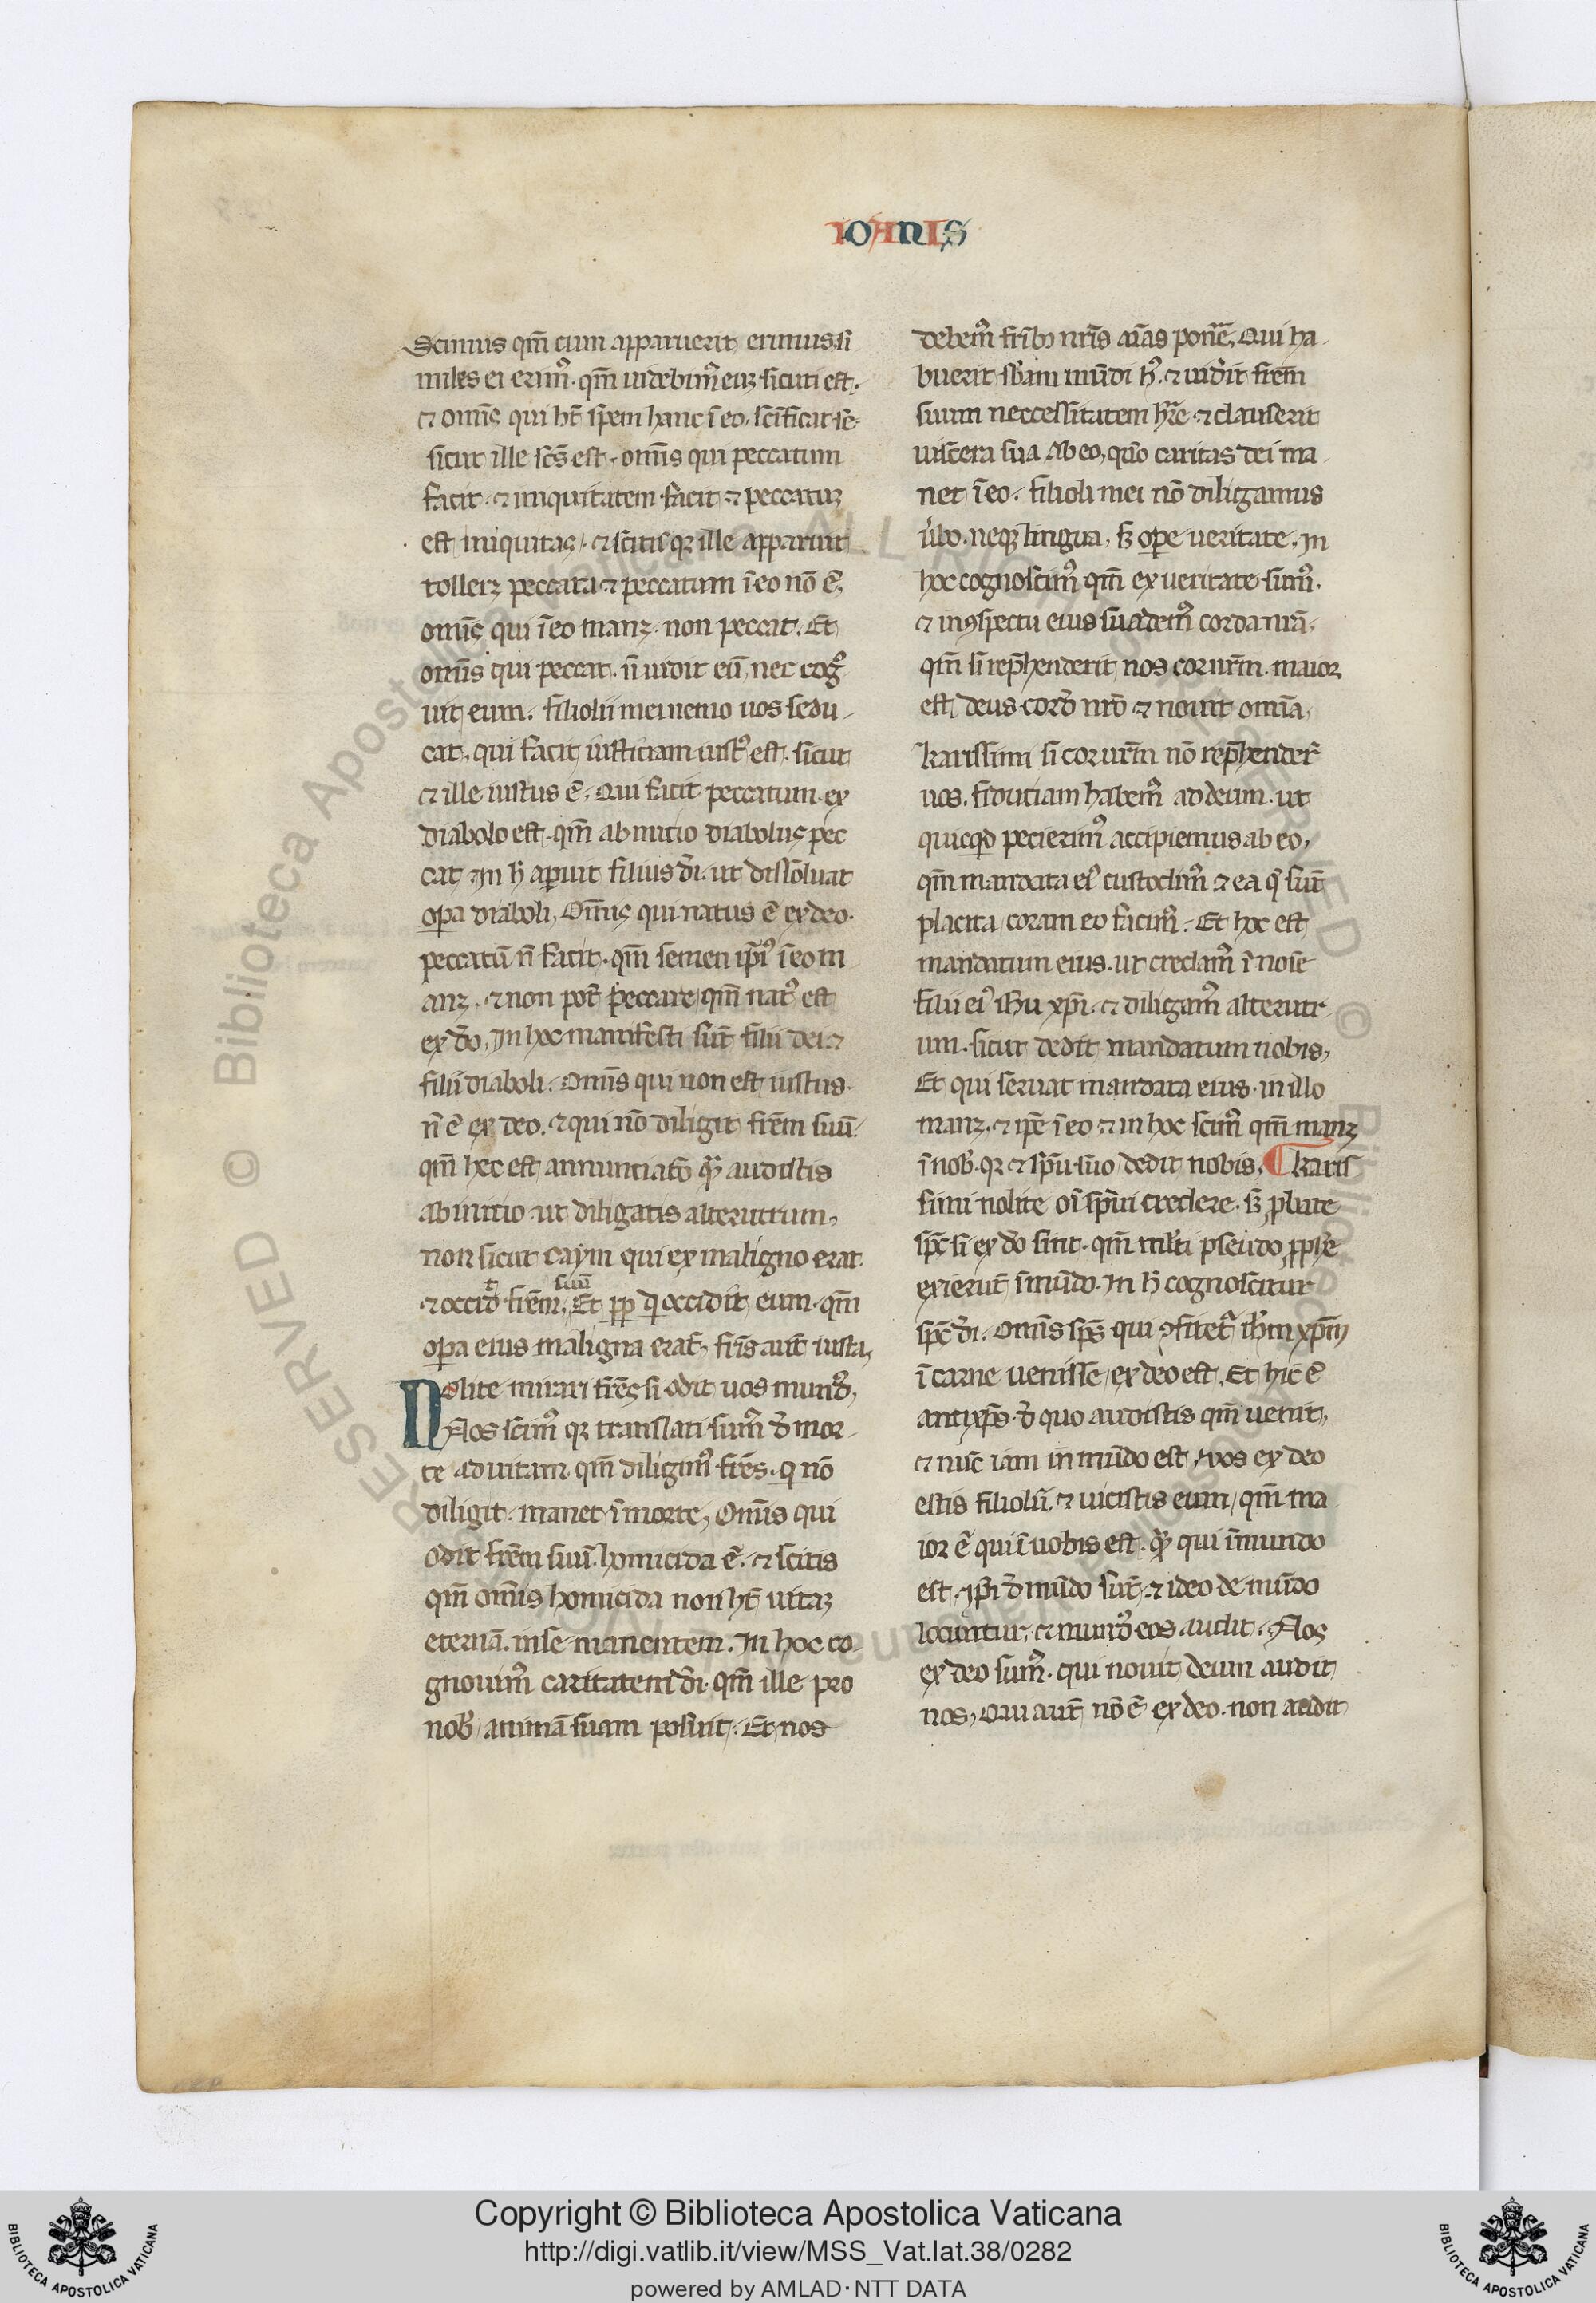 IOANIS
Scimus qm̄ cum apparuerit erimus si
miles ei erimꝰ. qm̄ uidebimꝰ euꝫ sicuti est.
⁊ omīs qui hꝫ spem hanc ī eo. scīficat se
sicut ille scs̄ est. omīs qui peccatum
facit. ⁊ iniquitatem facit ⁊ peccatuꝫ
est iniquitas. ⁊ scitis qꝫ ille apparuit
tolleꝫ peccata ⁊ peccatum ī eo nō ē.
omīs qui ī eo manꝫ. non peccat. Et
omīs qui peccat. n̄ uidit eū, nec cogͦ
uit eum. filiolii mei nemo uos sedu
cat. qui facit iusticiam iustꝰ est. sicut
⁊ ille iustus ē. Qui facit peccatum. ex
diabolo est. qm̄ ab initio diabolus pec
cat. In h̄ aparuit filius dī. ut dissoluat
oꝑa diaboli, Omīs qui natus ē ex deo.
peccatū n̄ facit. qm̄ semen ip̄iꝰ ī eo m
anꝫ. ⁊ non pōt peccare qm̄ natꝰ est
ex dō. In hoc manifesti sūt filii dei ⁊
filii diaboli. Omīs qui non est iustus.
n̄ ē ex deo. ⁊ qui nō diligit frēm suū.
qm̄ hec est annunciatō quā audistis
ab initio ut diligatis alterutrum,
non sicut caym qui ex maligno erat
⁊ occidͭ frēm suū. Et ꝓp̄ qͥ occidit eum. qm̄
oꝑa eius maligna erāt. frīs aūt iusta,
Nolite mirari frēs si odit uos mundꝰ,
Nos scimꝰ qꝫ translati sumꝰ d̄ mor
te ad uitam qm̄ diligimꝰ frēs. qͥ nō
diligit. manet ī morte, Omīs qui
odit frēm suū. homicida ē. ⁊ scitis
qm̄ omīs homicida non hꝫ uitaꝫ
eternā. in se manentem. In hoc co
gnouimꝰ caritatem dī. qm̄ ille pro
nob̄ animā suam posuit. Et nos
debemꝰ frībꝫ nrīs aīas ponē, Qui ha
buerit sb̄am mūdi hꝰ. ⁊ uid̄it frēm
suum neccessitatem hr̄e ⁊ clauserit
uiscera sua ab eo, quō caritas dei ma
net ī eo. filioli mei nō diligamus
ūbo. neqꝫ lingua, sꝫ oꝑe ueritate. In
hoc cognoscimꝰ qm̄ ex ueritate sumꝰ.
⁊ in ꝯspectu eius suademꝰ corda nrā.
qm̄ si rep̄henderit nos cor urm̄. maior
est deus cord̄ nrō ⁊ nouit omīa,
karissimi si cor urm̄ nō rep̄hender̄
uos. fiduciam habemꝰ ad deum. ut
quicqd pecierimꝰ accipiemus ab eo,
qm̄ mandata eiꝰ custodimꝰ ⁊ ea qͤ sūt
placita coram eo facimꝰ. Et hoc est
mandatum eius. ut credamꝰ ī noīe
filii eiꝰ ihu xpī. ⁊ diligamꝰ alterutr
um. sicut dedit mandatum nobis,
Et qui seruat mandata eius. in illo
manꝫ. ⁊ ipē ī eo ⁊ in hoc scimꝰ qm̄ manꝫ
ī nob̄. qꝫ ⁊ spū suo dedit nobis. ¶ karis
simi nolite oī spūi credere. sꝫ ꝓbate
spc̄ si ex dō sint. qm̄ mlti pseudo ꝓphē
exierūt ī mūdo. In h̄ cognoscitur
spc̄ dī. Omīs spc̄ qui ꝯfitetꝰ ihm xpm̄
ī carne uenisse ex deo est. Et hic ē
antixps̄. d̄ quo audistis qm̄ uenit,
⁊ nūc iam in mūdo est. uos ex deo
estis filiolii. ⁊ uicistis eum, qm̄ ma
ior ē qui ī uobis est. quā qui ī mundo
est. ip̄i d̄ mūdo sūt. ⁊ ideo de mūdo
locuntur. ⁊ mundꝰ eos audit. Nos
ex deo sumꝰ. qui nouit deum audit
nos, Qui aūt nō ē ex deo. non audit
Copyright © Biblioteca Apostolica Vaticana
http://digi.vatlib.it/view/MSS_Vat.lat.38/0282
powered by AMLAD · NTT DATA